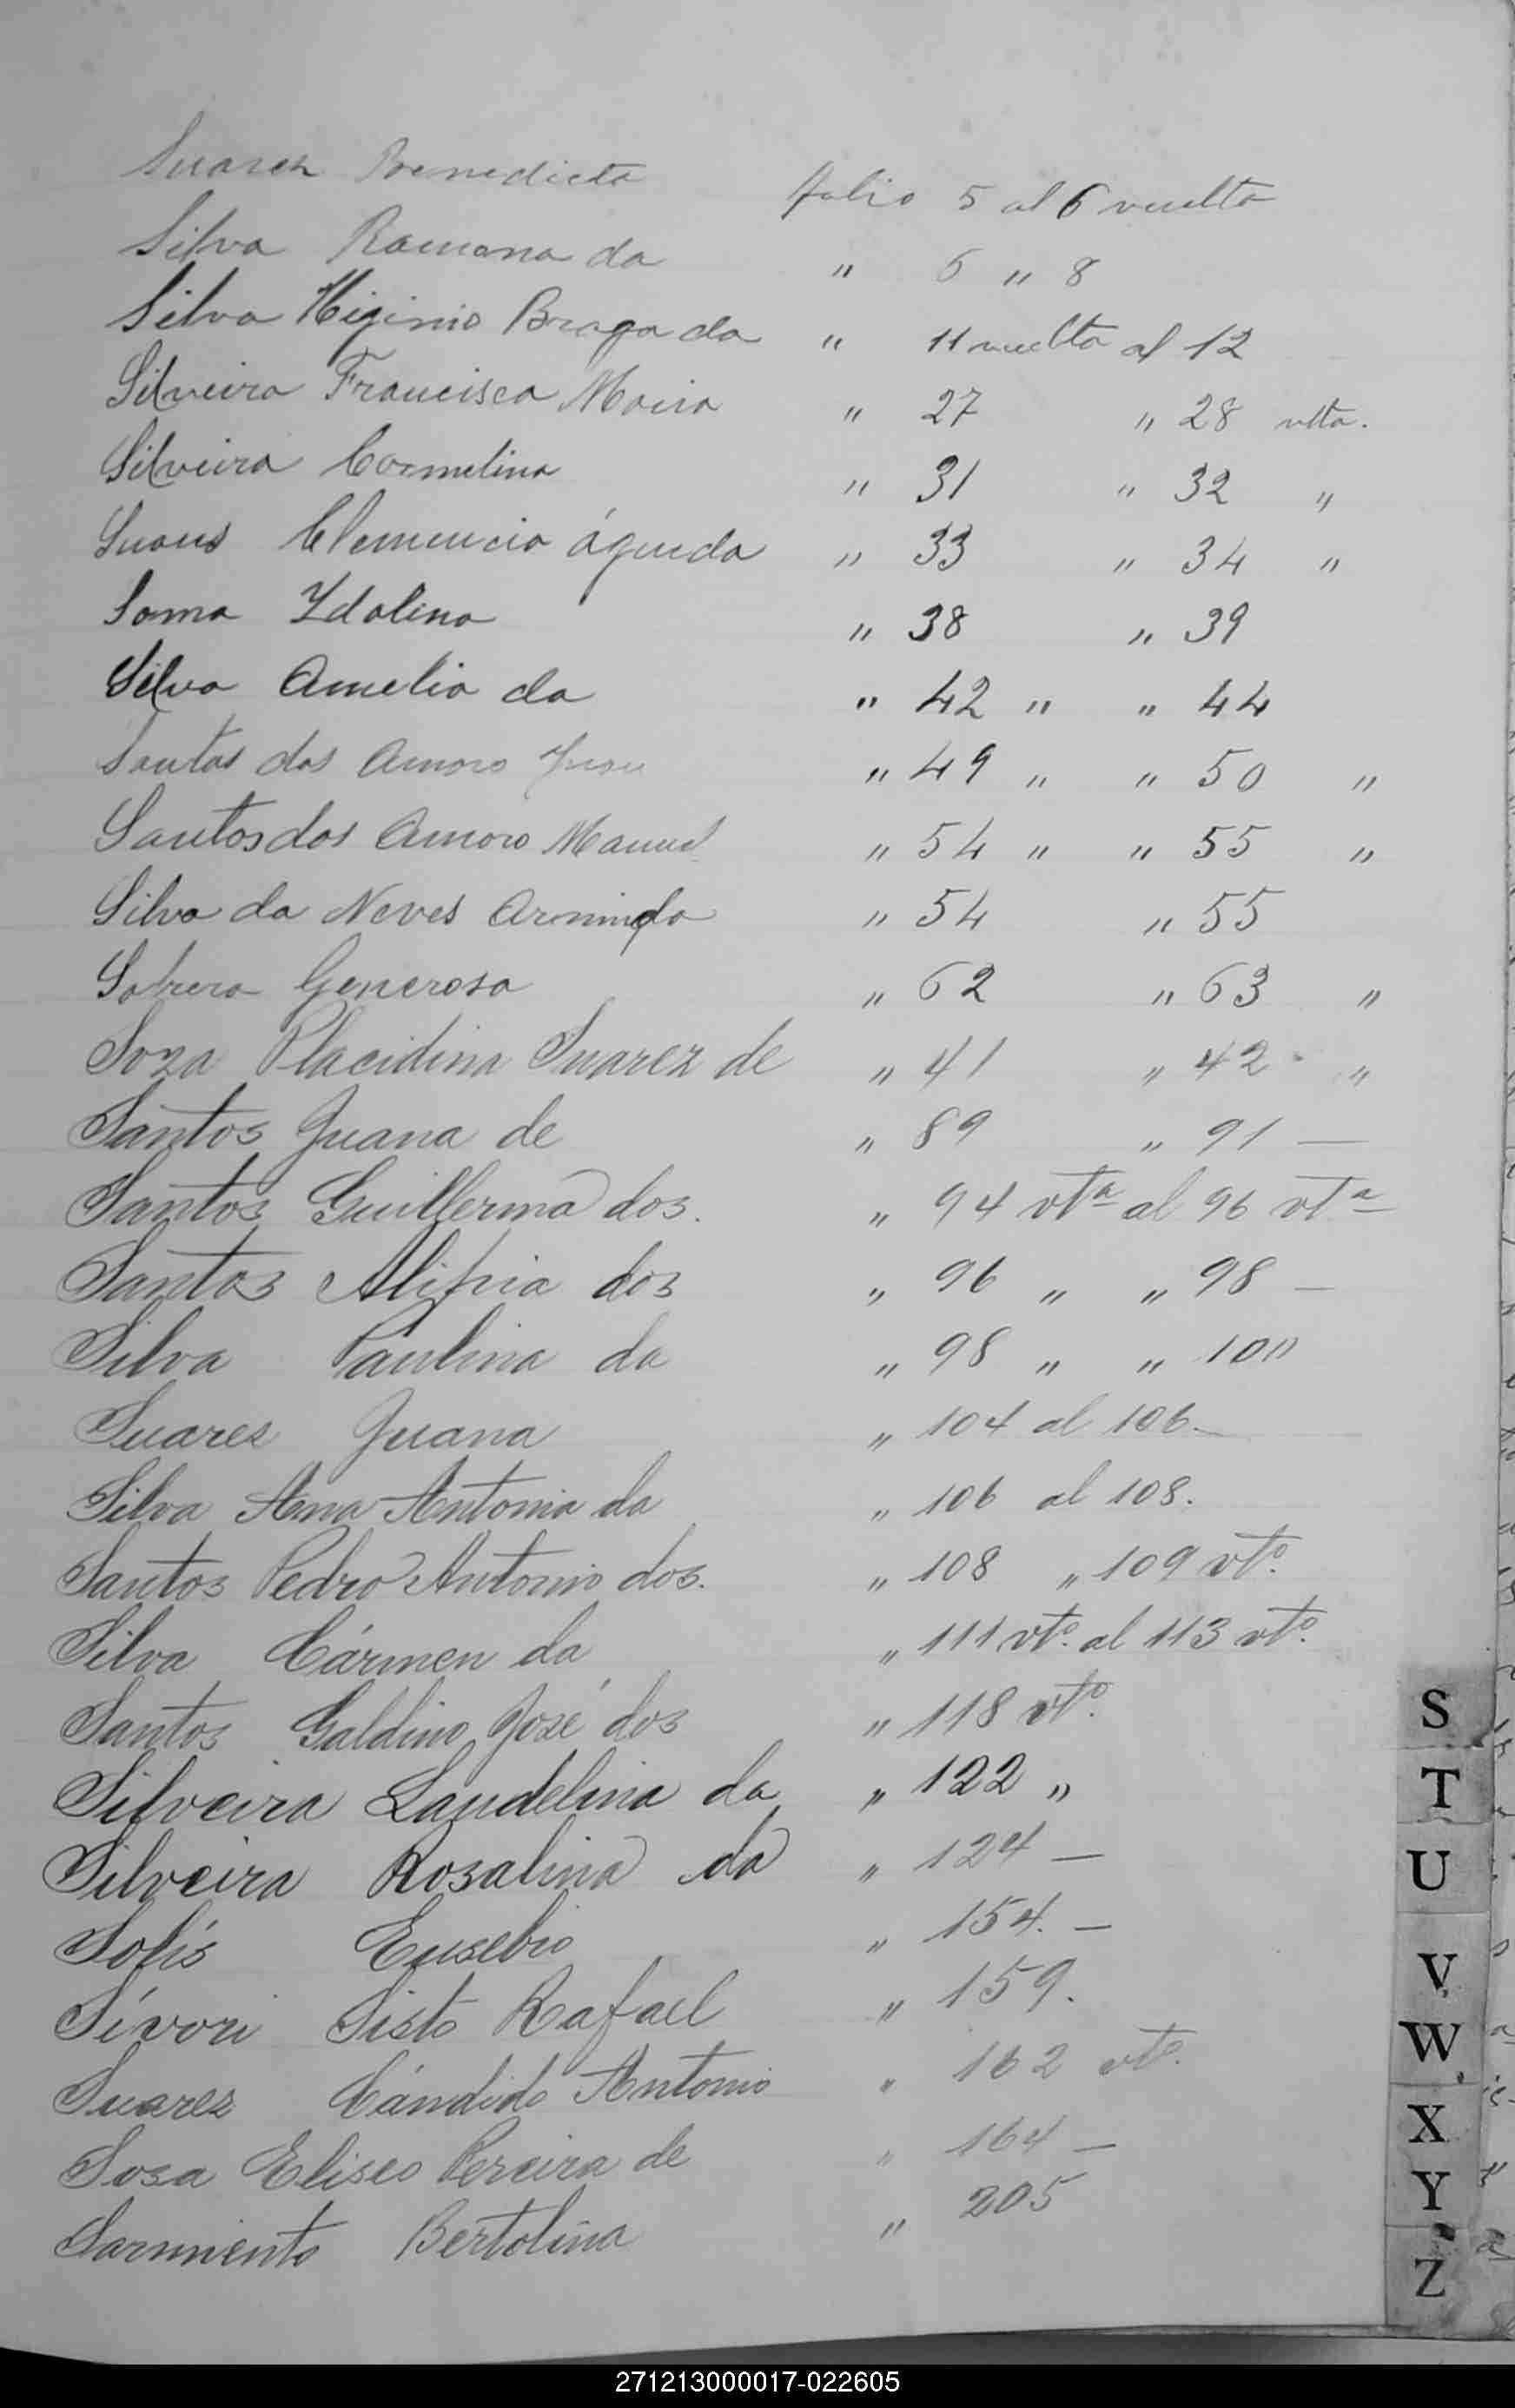 Suarez Benedicta folio 5 al 6 vuelta
Silva Ramona da " 6 " 8
Silva Higinio Braga da " 11 vuelta al 12
Silveira Francisca Maria " 27 " 28 vlta.
Silveira Carmelina " 31 " 32 "
Suares Clemencia águeda " 33 " 34 "
Soma Idalina " 38 " 39
Silva Amelia da " 42 " " 44
Santos dos Amaro Juan " 49 " " 50 "
Santos dos Amaro Manuel " 54 " " 55 "
Silva da Neves Arminda " 54 " 55
Sobrera Generosa " 62 " 63 "
Soza Placidina Suarez de " 41 " 42 "
Santos Juana de " 89 " 91 —
Santos Guillerma dos. " 94 vtª al 96 vtª
Santos Alipia dos " 96 " " 98 —
Silva Paulina da " 98 " " 100
Suares Juana " 104 al 106 —
Silva Ana Antonia da " 106 al 108.
Santos Pedro Antonio dos. " 108 " 109 vtº.
Silva Cármen da " 111 vtº. al 113 vtº.
Santos Galdino José dos " 118 vtº.
Silveira Laudelina da " 122 "
Silveira Rosalina da " 124 —
Solís Eusebio " 154. —
Sívori Sisto Rafael " 159.
Suarez Cándido Antonio " 162 vtº.
Sosa Eliseo Pereira de " 164 —
Sarmiento Bertolina " 205
S
T
U
V
W
X
Y
Z
271213000017-022605